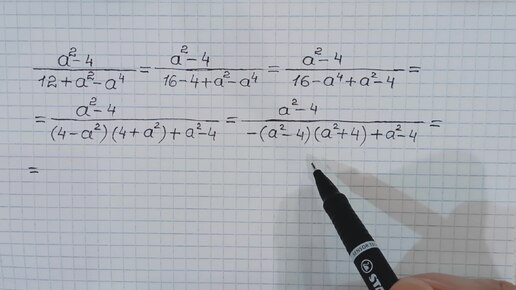 (a²-4)/(12+a²-a⁴) = (a²-4)/(16-4+a²-a⁴) = (a²-4)/(16-a⁴+a²-4) =
= (a²-4)/((4-a²)(4+a²)+a²-4) = (a²-4)/(-(a²-4)(a²+4)+a²-4) =
=